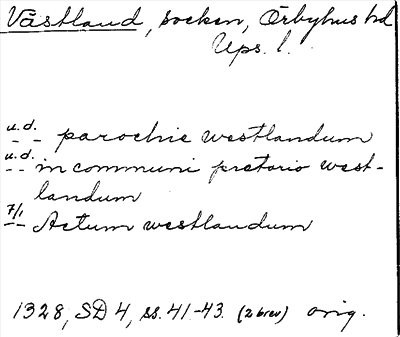 Västland, socken, Örbyhus hd
Ups. l.
u.d. - - parochie westlandum
u.d. - - in communi pretorio west-
landum
7/1 - - Actum westlandum
1328, SD 4, ss. 41-43. (2 brev) orig.